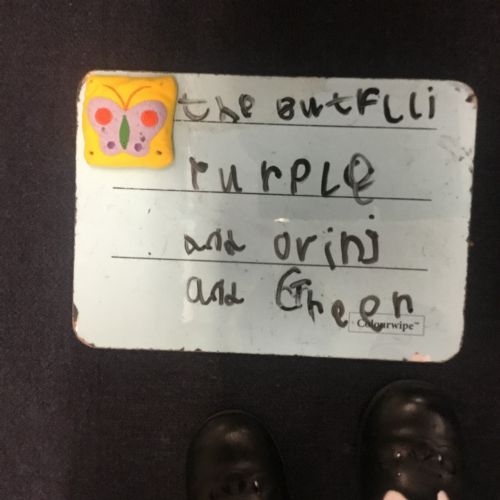 the Butflli
rurple
and orinj
and Green
Colourwipe™